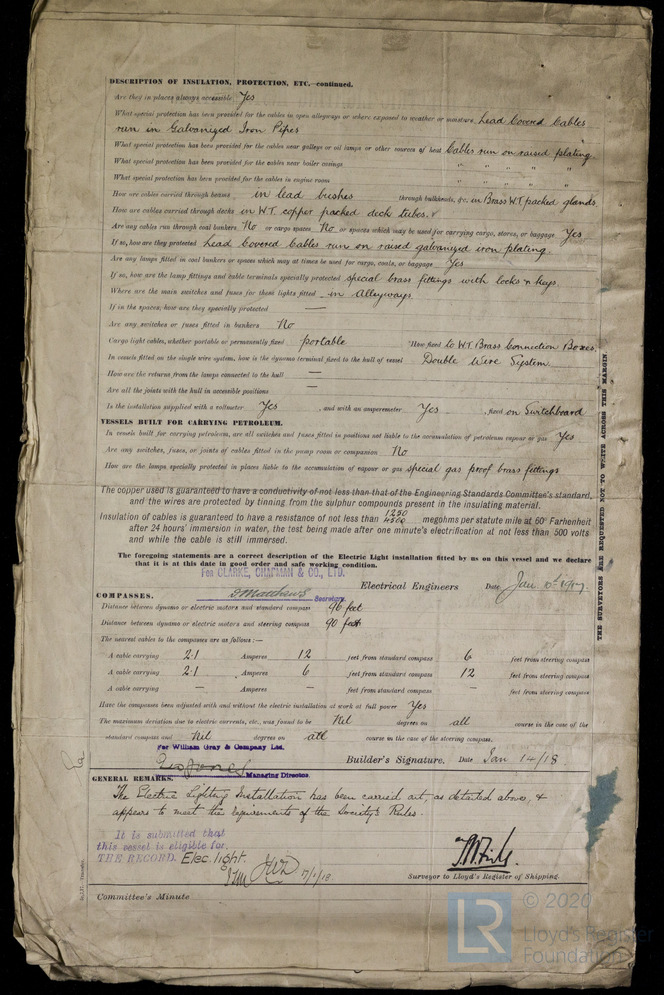 DESCRIPTION OF INSULATION, PROTECTION, ETC.—continued.
Are they in places always accessible Yes
What special protection has been provided for the cables in open alleyways or where exposed to weather or moisture Lead Covered Cables
run in Galvanized Iron Pipes
What special protection has been provided for the cables near galleys or oil lamps or other sources of heat Cables run on raised plating.
What special protection has been provided for the cables near boiler casings " " " "
What special protection has been provided for the cables in engine room " " " "
How are cables carried through beams in lead bushes through bulkheads, &c. in Brass W.T. packed glands.
How are cables carried through decks in W.T. copper packed deck tubes.
Are any cables run through coal bunkers No or cargo spaces No or spaces which may be used for carrying cargo, stores, or baggage Yes
If so, how are they protected Lead Covered Cables run on raised galvanized iron plating.
Are any lamps fitted in coal bunkers or spaces which may at times be used for cargo, coals, or baggage Yes
If so, how are the lamp fittings and cable terminals specially protected special brass fittings with locks & keys.
Where are the main switches and fuses for these lights fitted in Alleyways.
If in the spaces, how are they specially protected —
Are any switches or fuses fitted in bunkers No
Cargo light cables, whether portable or permanently fixed portable How fixed to W.T. Brass Connection Boxes.
In vessels fitted on the single wire system, how is the dynamo terminal fixed to the hull of vessel Double Wire System
How are the returns from the lamps connected to the hull —
Are all the joints with the hull in accessible positions —
Is the installation supplied with a voltmeter Yes , and with an amperemeter Yes , fixed on Switchboard
VESSELS BUILT FOR CARRYING PETROLEUM.
In vessels built for carrying petroleum, are all switches and fuses fitted in positions not liable to the accumulation of petroleum vapour or gas Yes
Are any switches, fuses, or joints of cables fitted in the pump room or companion No
How are the lamps specially protected in places liable to the accumulation of vapour or gas special gas proof brass fittings
The copper used is guaranteed to have a conductivity of not less than that of the Engineering Standards Committee's standard,
and the wires are protected by tinning from the sulphur compounds present in the insulating material.
Insulation of cables is guaranteed to have a resistance of not less than 1250 megohms per statute mile at 60° Farhenheit
after 24 hours' immersion in water, the test being made after one minute's electrification at not less than 500 volts
and while the cable is still immersed.
The foregoing statements are a correct description of the Electric Light installation fitted by us on this vessel and we declare
that it is at this date in good order and safe working condition.
For CLARKE, CHAPMAN & CO., LTD.
Matthews Secretary. Electrical Engineers Date Jan 10th
COMPASSES.
Distance between dynamo or electric motors and standard compass 96 feet
Distance between dynamo or electric motors and steering compass 90 feet
The nearest cables to the compasses are as follows:—
A cable carrying 2.1 Amperes 12 feet from standard compass 6 feet from steering compass
A cable carrying 2.1 Amperes 6 feet from standard compass 12 feet from steering compass
A cable carrying — Amperes — feet from standard compass — feet from steering compass
Have the compasses been adjusted with and without the electric installation at work at full power Yes
The maximum deviation due to electric currents, etc., was found to be Nil degrees on all course in the case of the
standard compass and Nil degrees on all course in the case of the steering compass.
For William Gray & Company Ltd.
Managing Director. Builder's Signature. Date Jan 14/18
GENERAL REMARKS.
The Electric Lighting Installation has been carried out, as detailed above, &
appears to meet the requirements of the Society's Rules.
It is submitted that
this vessel is eligible for
THE RECORD. Elec. light.
17/1/18.
Surveyor to Lloyd's Register of Shipping.
Committee's Minute
THE SURVEYORS ARE REQUESTED NOT TO WRITE ACROSS THIS MARGIN.
LR
© 2020
Lloyd's Register
Foundation